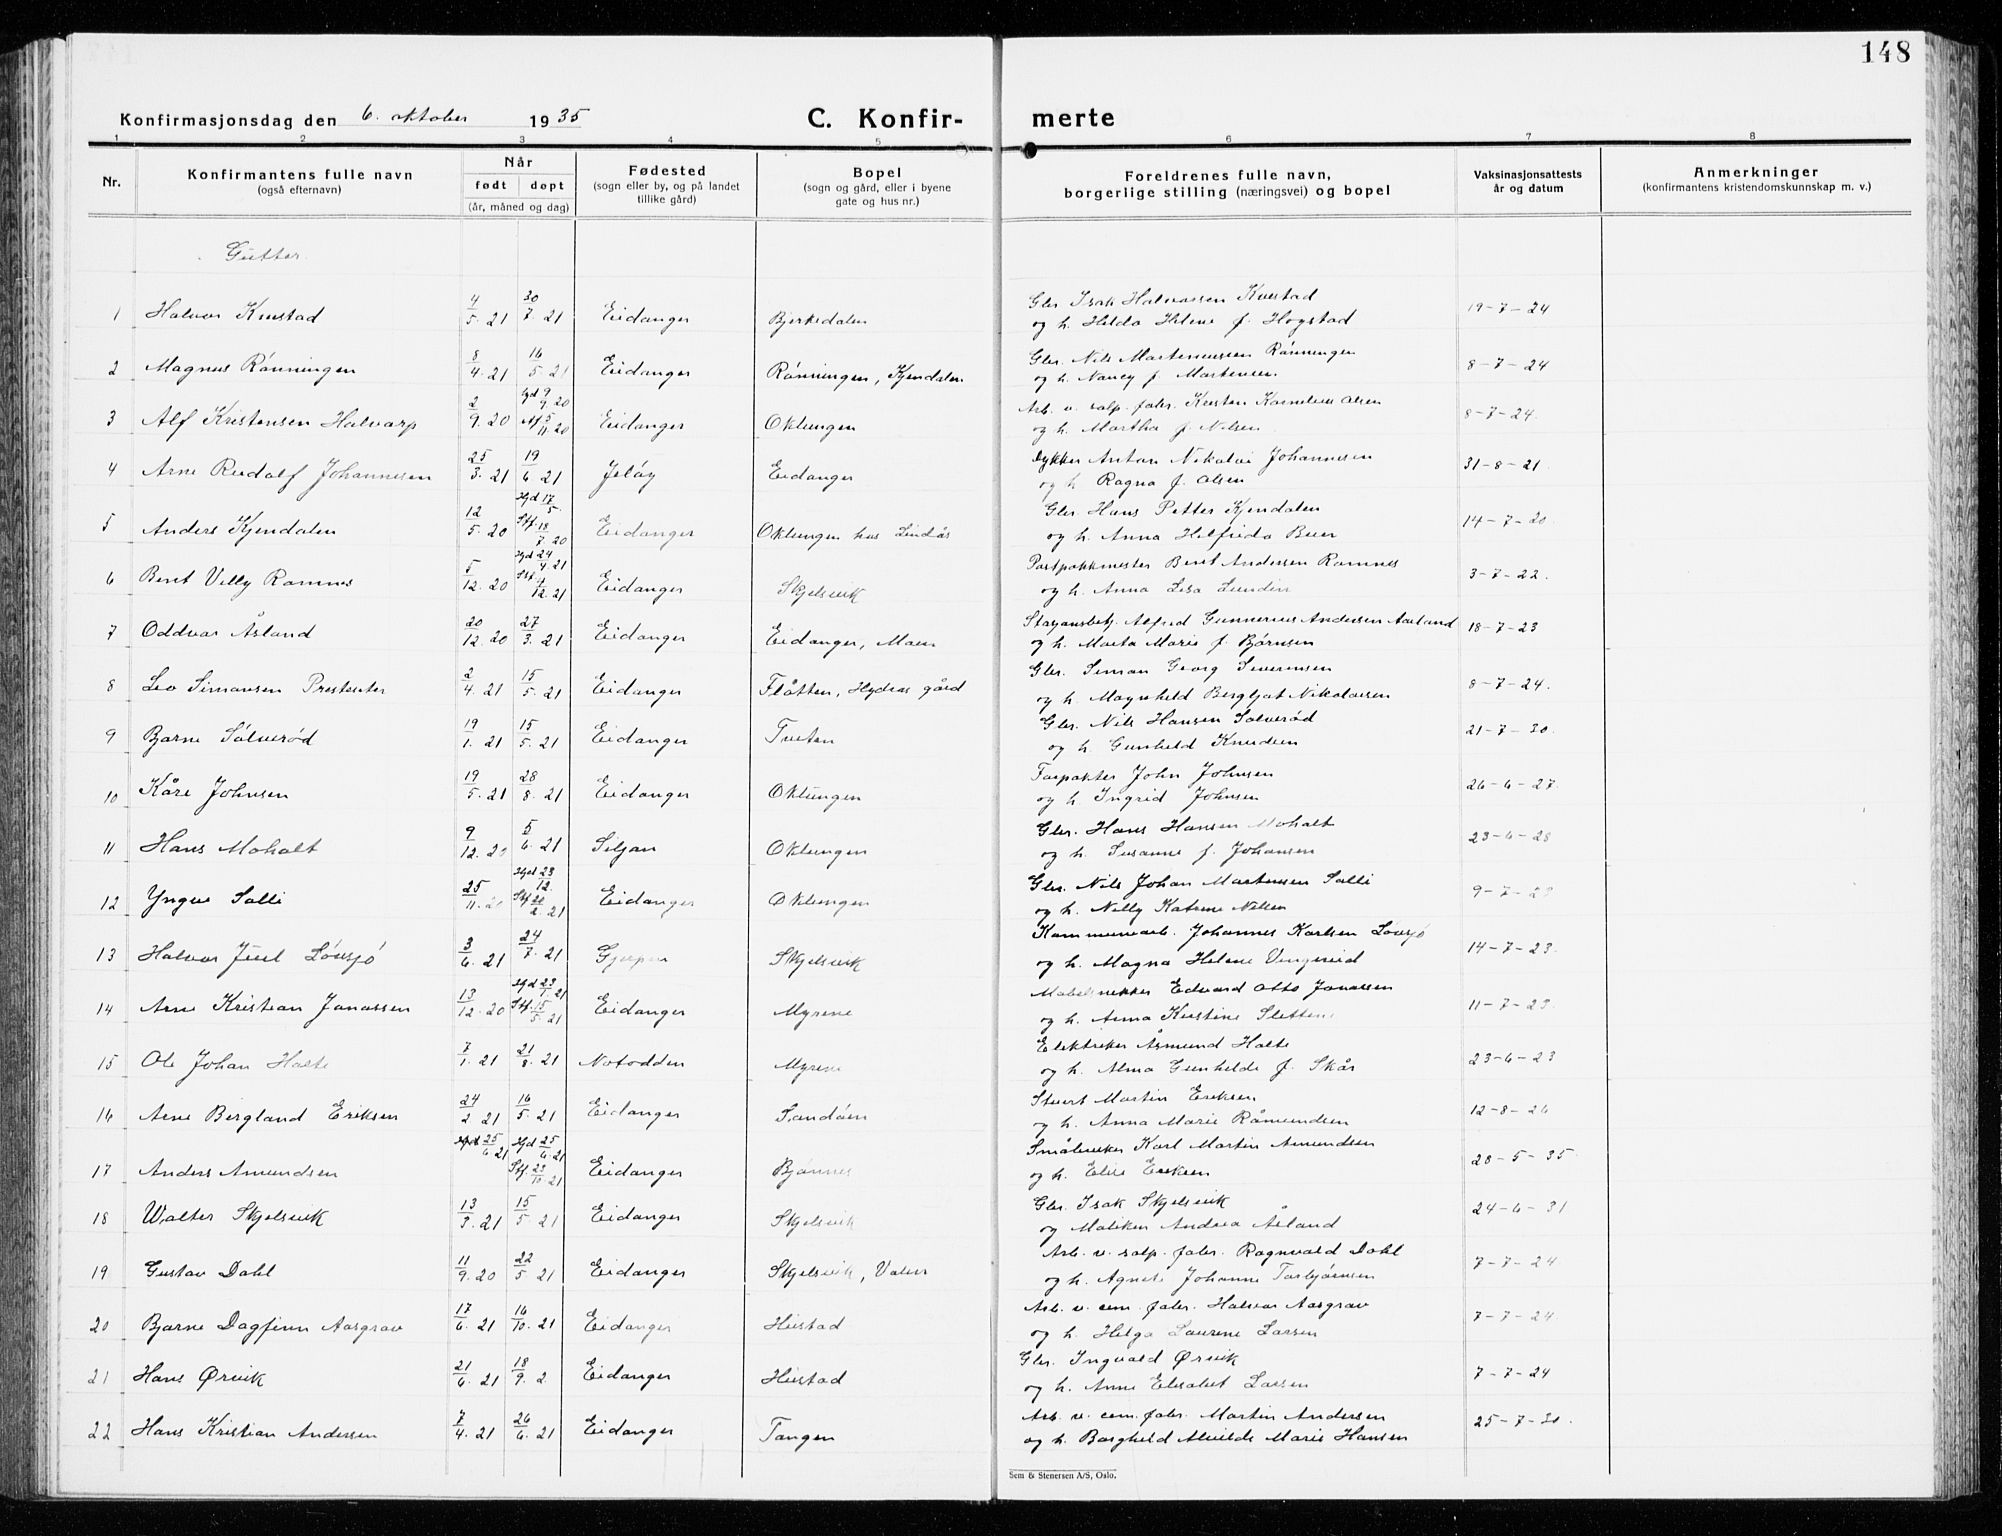 148
Konfirmasjonsdag den 6. oktober 1935 C. Konfir- merte
1 2 3 4 5 6 7 8
Nr. Konfirmantens fulle navn (også efternavn) Når født døpt (år, måned og dag) Fødested (sogn eller by, og på landet tillike gård) Bopel (sogn og gård, eller i byene gate og hus nr.) Foreldrenes fulle navn, borgerlige stilling (næringsvei) og bopel Vaksinasjonsattests år og datum Anmerkninger (konfirmantens kristendomskunnskap m. v.)
Gutter.
1 Halvor Knustad 4/5. 21 30/7. 21 Eidanger Bjerkedalen Gbr. Isak Halvorsen Knustad
og h. Helda Helene f. Hogstad 19-7-24
2 Magnus Rønningen 8/4. 21 16/5. 21 Eidanger Rønningen, Kjendalen Gbr. Nils Martinussen Rønningen
og h. Nancy f. Martensen 8-7-24
3 Alf Kristensen Halvarp 2/9. 20 hjd 9/9. 20 5/11. 20 Eidanger Oklungen Arb. v. salp. fabr. Karsten Kornelius Olsen
og h. Martha f. Nilsen 8-7-24.
4 Arne Rudolf Johannesen 25/3. 21 19/6 21 Jeløy Eidanger Dykker Anton Nikolai Johannesen
og h Ragna f. Olsen 31-8-21.
5 Anders Kjendalen 12/5. 20 Hjd 17/5. Stf. 18/7. 20 Eidanger Oklungen hos Lindås Gbr. Hans Petter Kjendalen
og h. Anna Helfrida Buer 14-7-20.
6 Bent Villy Ramnes 5/12. 20 Hjd 24/4 21 Stf. 4/12. 21 Eidanger Skjelsvik Postpakkmester Bent Andersen Ramnes
og h. Anna Lisa Lundin 3-7-22.
7 Oddvar Åsland 20/12. 20 27/3. 21 Eidanger Eidanger, Moen Alfred Gunnerius Andersen Aasland
og h. Marta Marie f. Bjørnsen 18-7-23
8 Leo Simonsen Prestesæter 2/4. 21 15/5. 21 Eidanger Flåtten, Hydros gård Gbr. Simon Georg Severinsen
og h. Magnhild Bergljot Nikolaisen 8-7-24.
9 Bjarne Sølverød 19/1. 21 15/5. 21 Eidanger Tveten Gbr. Nils Hansen Sølverød
og h. Gunhild Knudsen 21-7-30.
10 Kåre Johnsen 19/5. 21 28/8. 21 Eidanger Oklungen Forpakter John Johnsen
og h. Ingrid Johnsen 26-6-27.
11 Hans Moholt 9/12. 20 5/6. 21 Siljan Oklungen Gbr. Hans Hansen Moholt
og h. Susanne f. Johansen 23-6-28
12 Yngve Solli 25/11. 20 Hjd 23/12. Stf 20/2. 21 Eidanger Oklungen Gbr. Nils Johan Martensen Solli
og h. Nelly Katrine Nilsen 9-7-23
13 Halvor Juel Løvsjø 3/6. 21 24/7. 21 Gjerpen Skjelsvik Kommunearb. Johannes Karlsen Løvsjø
og h. Magna Helene 14-7-23.
14 Arne Kristian Jonassen 13/12. 20 Hjd 23/1. 21 Stf. 15/5. 21 Eidanger Myrene Møbelsnekker Edvard Otto Jonassen
og h. Anna Kristine Slettene 11-7-23.
15 Ole Johan Halte 7/1. 21 21/8. 21 Notodden Myrene Elektriker Asmund Halte
og h. Alma Gunhilde f. Skår 23-6-23
16 Arne Bergland Eriksen 24/2 21 16/5. 21 Eidanger Sandøen Stuert Martin Eriksen
og h. Anna Marie Råmundsen 12-8-26
17 Anders Amundsen 25/6 21 Hjd 25/6. 21 Stf. 23/10. 21 Eidanger Bjønnes Småbruker Karl Martin Amundsen
og h. Elise Eriksen 28-5-35.
18 Walter Skjelsvik 13/3. 21 15/5 21 Eidanger Skjelsvik Gbr. Isak Skjelsvik
og Maliken Andrea Åsland 24-6-31
19 Gustav Dahl 11/9. 20 22/5 21 Eidanger Skjelsvik, Valen Arb. v. salp. fabr. Ragnvald Dahl
og h. Agnete Johanne Torbjørnsen 7-7-24
20 Bjarne Dagfinn Aasgrav 17/6. 21 16/10. 21 Eidanger Heistad Arb. v. cem. fabr. Halvor Aasgrav
og h. Helga Laurine Larsen 7-7-24
21 Hans Ørvik 21/6. 21 18/9. 2 Eidanger Heistad Gbr. Ingvald Ørvik
og h. Anne Elisabet Larsen 7-7-24
22 Hans Kristian Andersen 7/4. 21 26/6. 21 Eidanger Tangen Arb. v. cem. fabr. Martin Andersen
og h. Borghild Alvilde Marie Hansen 25-7-30.
Sem & Stenersen A/S, Oslo.